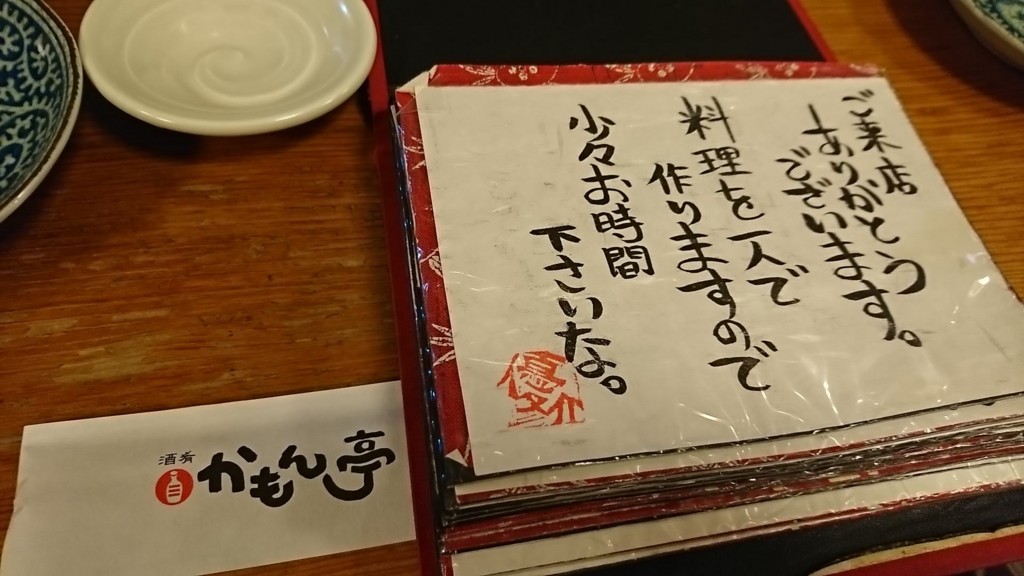 ご来店
ありがとう
ございます。
料理を一人で
作りますので
少々お時間
下さいなよ。
酒肴
かもん亭